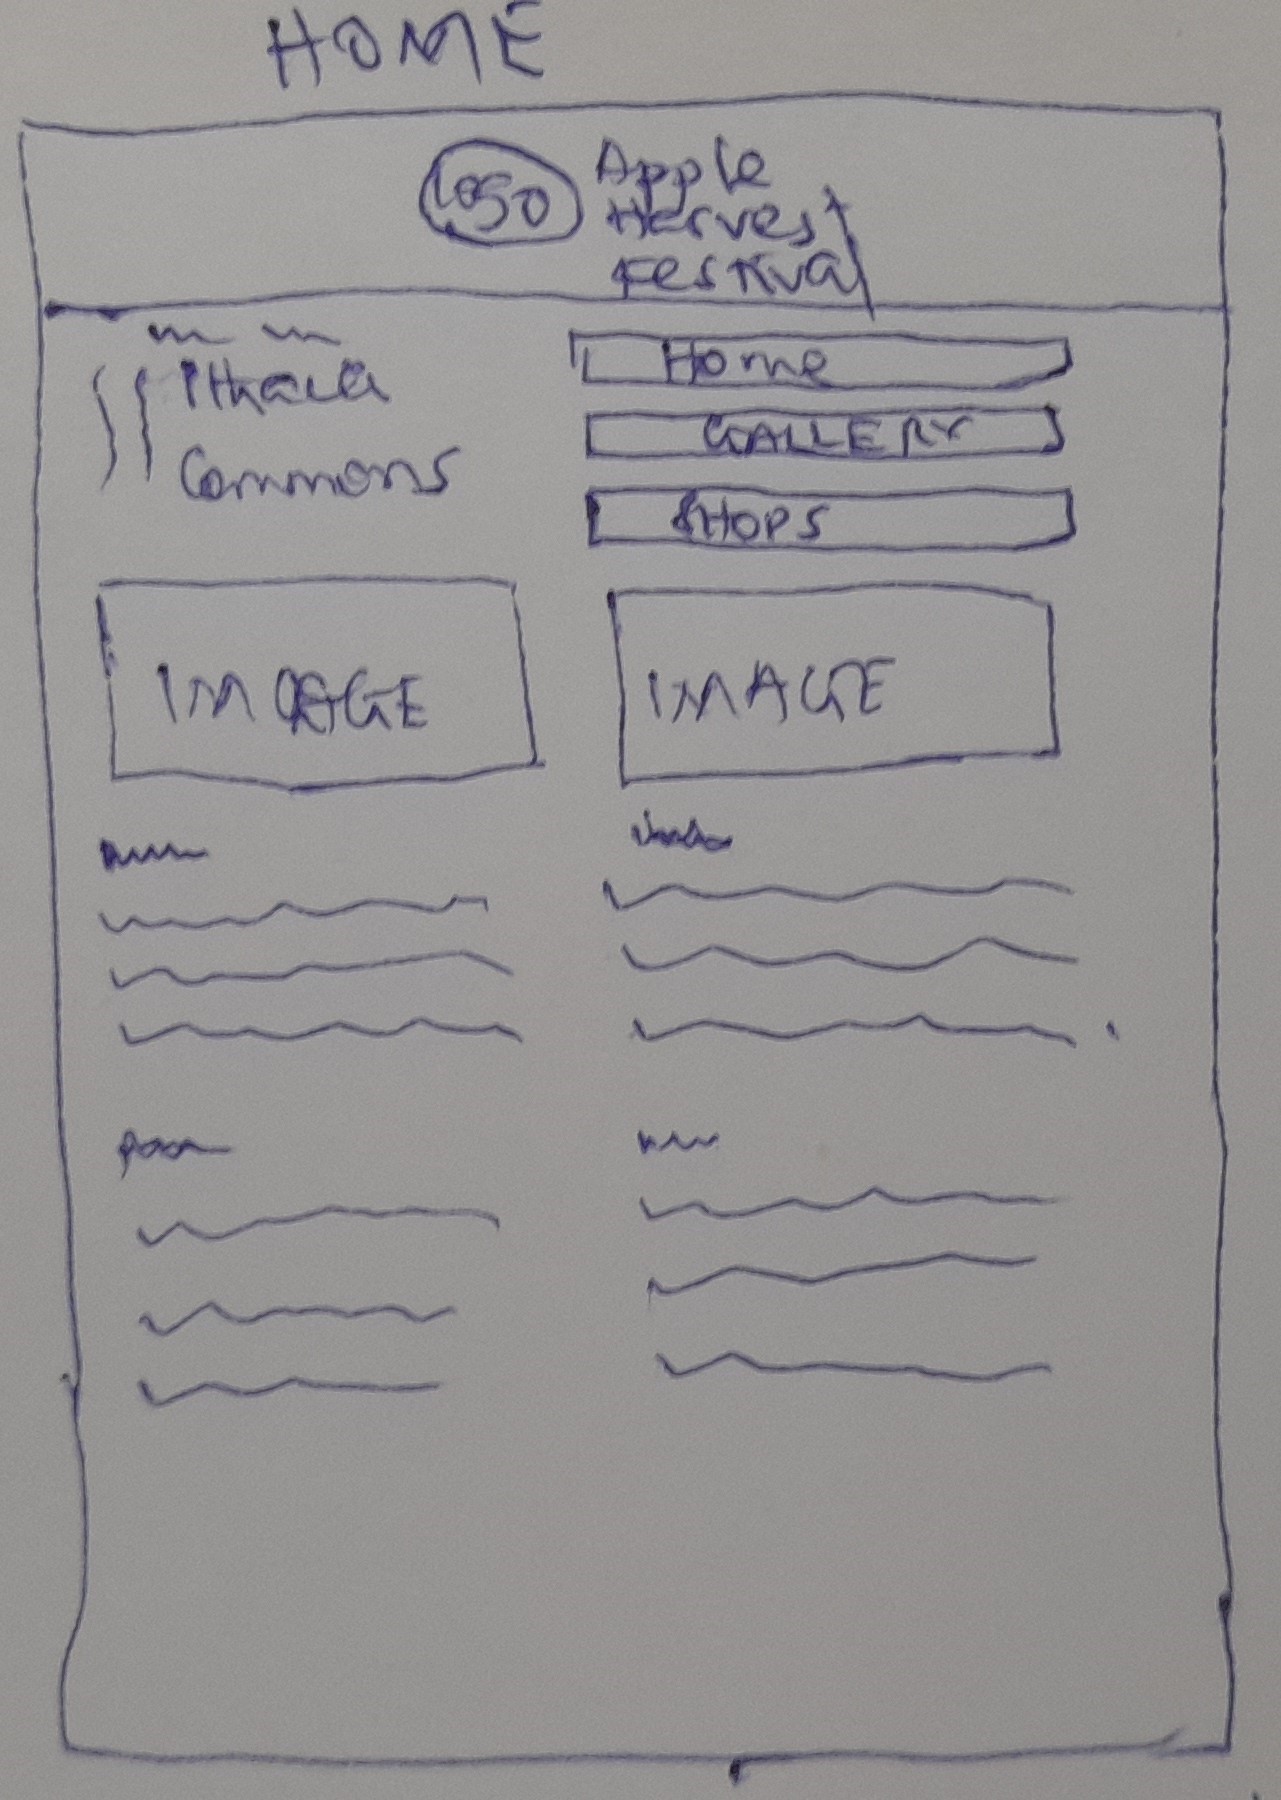 HOME
Logo
Apple
Harvest
Festival
Ithaca
Commons
Home
GALLERY
SHOPS
IMAGE
IMAGE